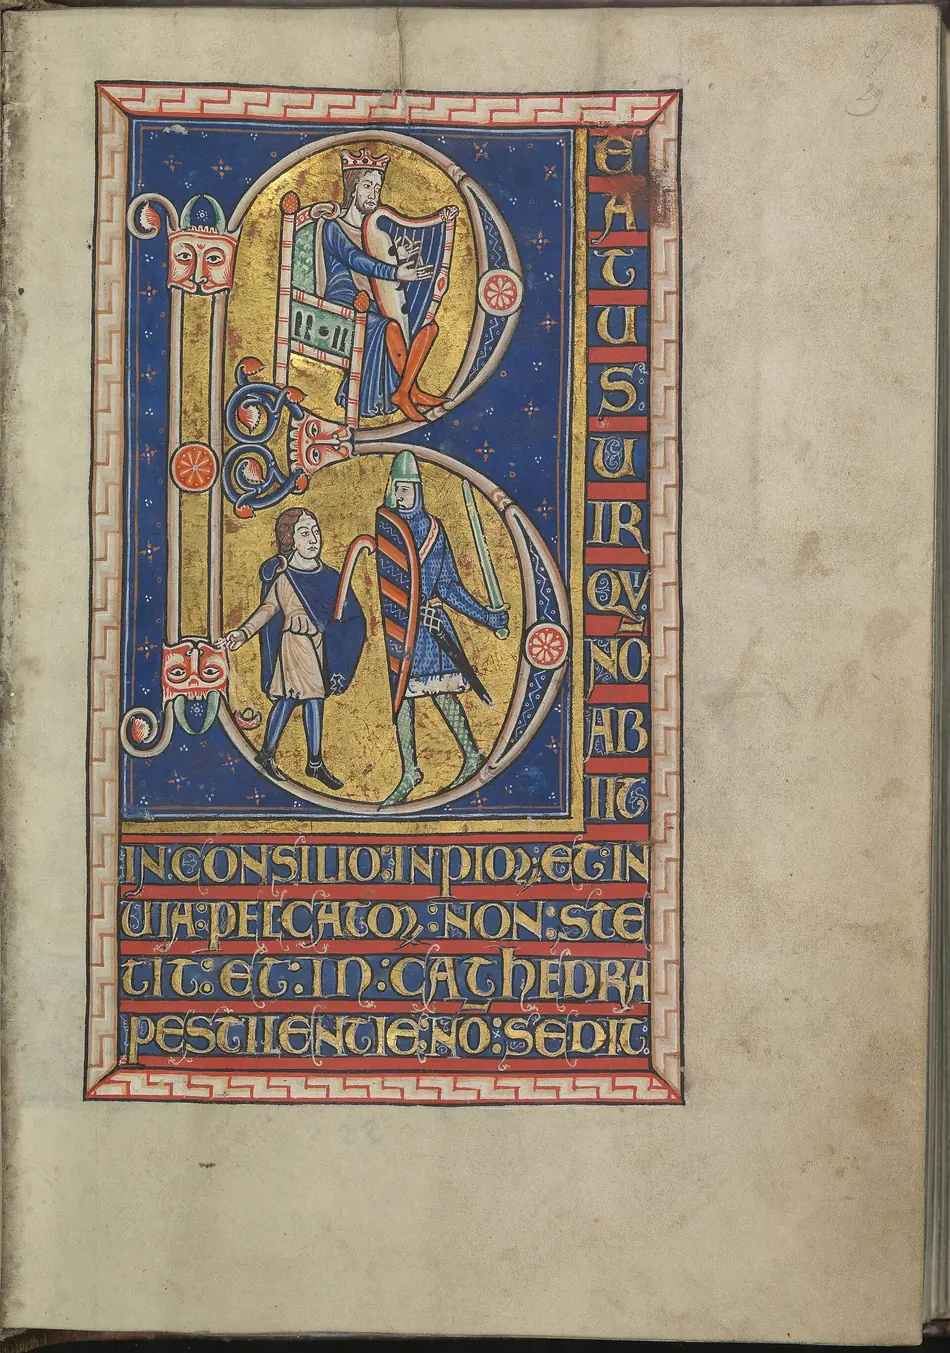 B
E
A
T
U
S
U
IR
QV
NO
AB
IIT
IN:CONSILIO:INPIOꝝ:ET:IN
UIA:PECCATOꝝ:NON:STE
TIT:ET:IN:CATHEDRA
PESTILENTIE:NO:SEDIT